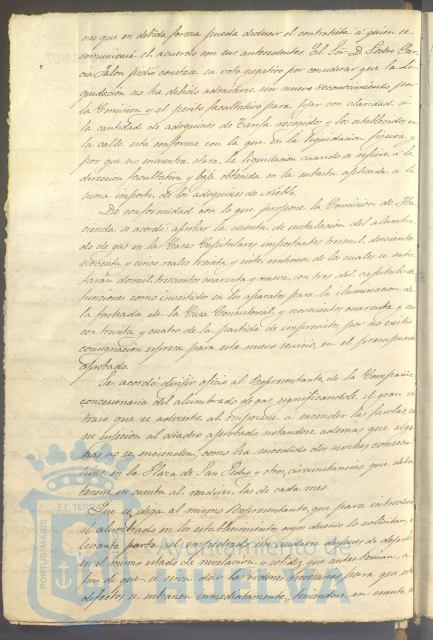 nes que en debida forma pueda deducir el contratista á quien se
comunicará el acuerdo con sus antecedentes. El Sor. D. Pedro Gar-
cia Jalon pidió constase su voto negativo por considerar que la li-
quidacion no ha debido admitirse sin nuevo reconocimiento por
la Comision y el perito facultativo para fijar con claridad si
la cantidad de adoquines de Tarifa recogidos y los establecidos en
la calle está conforme con la que en la liquidacion figura, y
por que no encuentra clara la liquidacion cuando se refiere á la
direccion facultativa y baja obtenida en la subasta aplicada á la
suma importe de los adoquines de Niebla.
De conformidad con lo que propone la Comision de Ha-
cienda se acordó aprobar la cuenta de instalacion del alumbra-
do de gas en las Casas Capitulares importantes tresmil doscientos
noventa y cinco reales treinta y siete centimos de los cuales se satis-
farán dosmil trescientos cuarenta y nueve con tres del capitulo de
funciones como invertidos en los aparatos para la iluminacion de
la fachada de la Casa Consistorial, y novecientos cuarenta y
con treinta y cuatro de la partida de imprevistos, por no existir
consignacion espresa para este nuevo servicio, en el presupuesto
aprobado.
Se acordó dirijir oficio al Representante de la Compañia
concesionaria del alumbrado de gas, significandole el gran re-
traso que se advierte al empezarse á encender las farolas
su sujecion al cuadro aprobado, notandose ademas que algu-
nas no se encienden, como ha sucedido dos noches consecu-
tivas en la Plaza de San Pedro y otras, circunstancias que deben
tenerse en cuenta al
Que se diga al mismo Representante, que para introducir
el alumbrado en los establecimientos cuyos dueños lo solicitan, se
levanta parte del empedrado sin cuidarse despues de dejarlo
en el mismo estado de nivelacion y solidez que antes tenian, á
fin de que se sirva dar las órdenes necesarias para que estos
defectos se subsanen inmediatamente, teniendose en cuenta
PORTUS MARIS
ET TERRAE
Ayuntamiento de
HUELVA